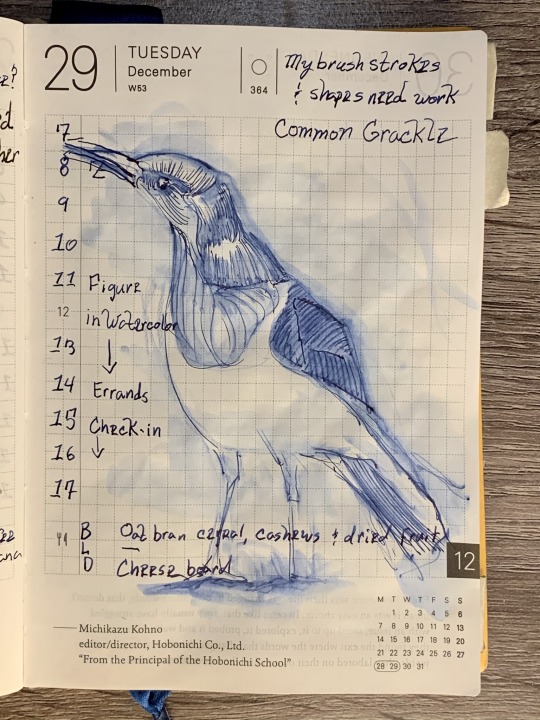 29
TUESDAY
December
W53
364
My brush strokes
& shapes need work
Common Grackle
7
8
9
10
11 Figure
12 in Watercolor
13
14 Errands
15 Check-in
16
17
B Oat bran cereal, cashews & dried fruit
L —
D Cheese board
12
Michikazu Kohno
editor/director, Hobonichi Co., Ltd.
"From the Principal of the Hobonichi School"
M T W T F S S
1 2 3 4 5 6
7 8 9 10 11 12 13
14 15 16 17 18 19 20
21 22 23 24 25 26 27
28 29 30 31